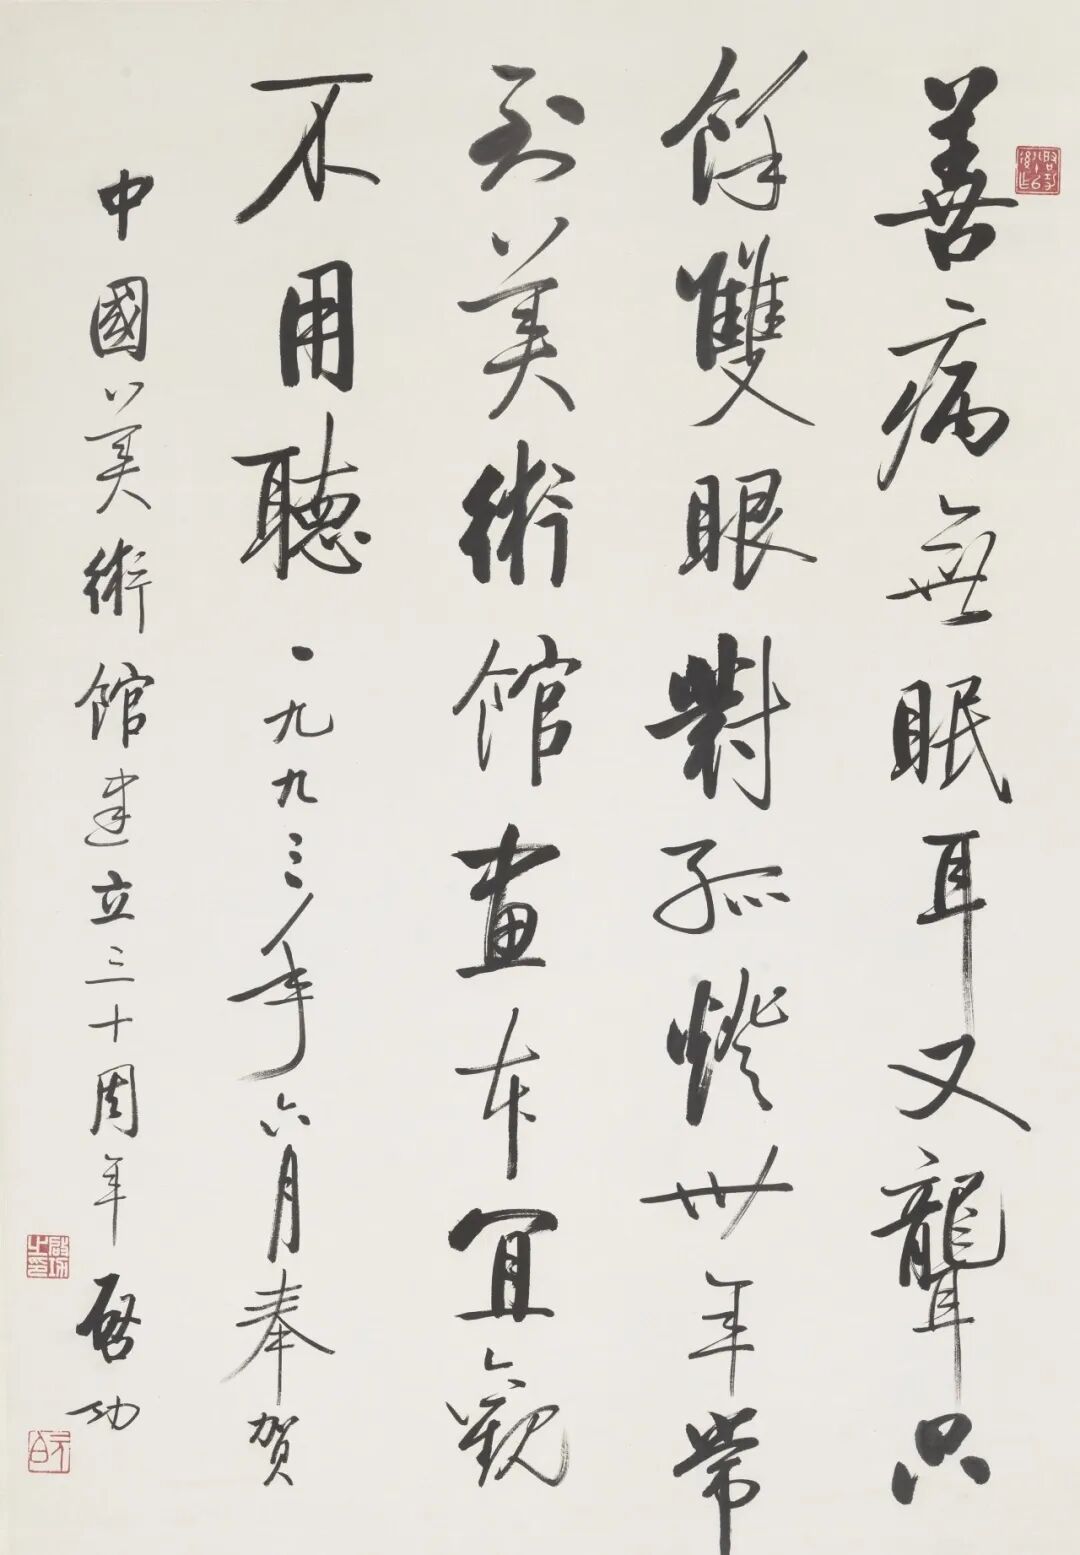 善病無眠耳又聾只
餘雙眼對孤燈卅年常
到美術館畫本宜觀
不用聽 一九九三年六月奉賀
中國美術館建立三十周年 啓功
啓功之印
元白